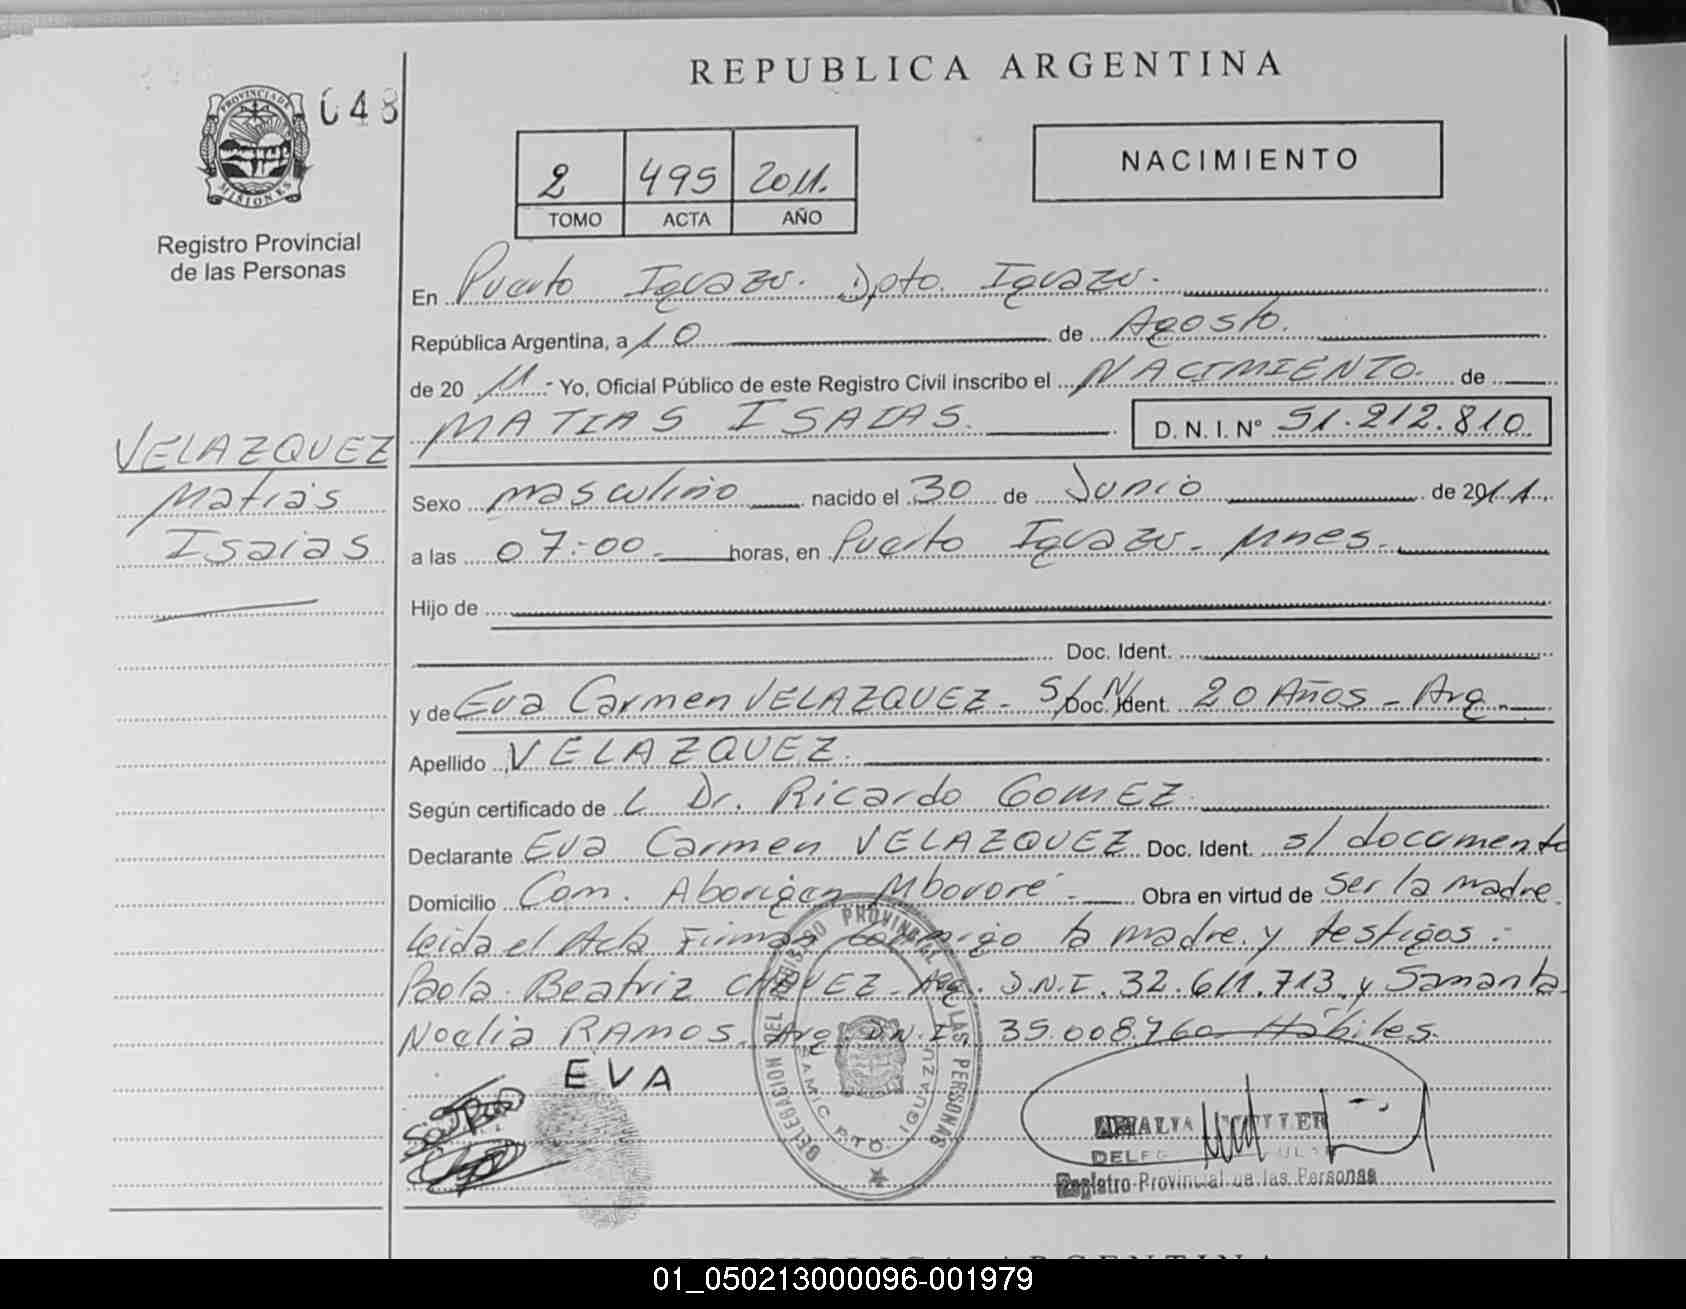 REPUBLICA ARGENTINA
PROVINCIA DE MISIONES
048
2 495 2011.
TOMO ACTA AÑO
NACIMIENTO
Registro Provincial
de las Personas
En Puerto Iguazu. Dpto. Iguazu.
República Argentina, a 10 de Agosto.
de 20 11.- Yo, Oficial Público de este Registro Civil inscribo el NACIMIENTO. de
MATIAS ISAIAS. D. N. I. N° 51.212.810.
VELAZQUEZ
Matias
Isaias
Sexo masculino nacido el 30 de Junio de 2011.
a las 07:00 horas, en Puerto Iguazu - Mnes.
Hijo de
Doc. Ident.
y de Eva Carmen VELAZQUEZ - S/N/ Doc. Ident. 20 Años - Arg.
Apellido VELAZQUEZ.
Según certificado de L Dr. Ricardo GOMEZ
Declarante Eva Carmen VELAZQUEZ Doc. Ident. s/ documento
Domicilio Com. Aborigen Mbororé - Obra en virtud de ser la madre.
Leida el Acta Firman conmigo la madre y testigos:
Paola Beatriz CHAVEZ - Arg. D.N.I. 32.611.713 y Samanta
Noelia RAMOS. Arg D.N.I. 35.008.760 Hábiles.
EVA
DELEGACION DEL REGISTRO PROVINCIAL DE LAS PERSONAS
PTO. IGUAZU
AMALIA
Registro Provincial de las Personas
REPUBLICA ARGENTINA
01_050213000096-001979